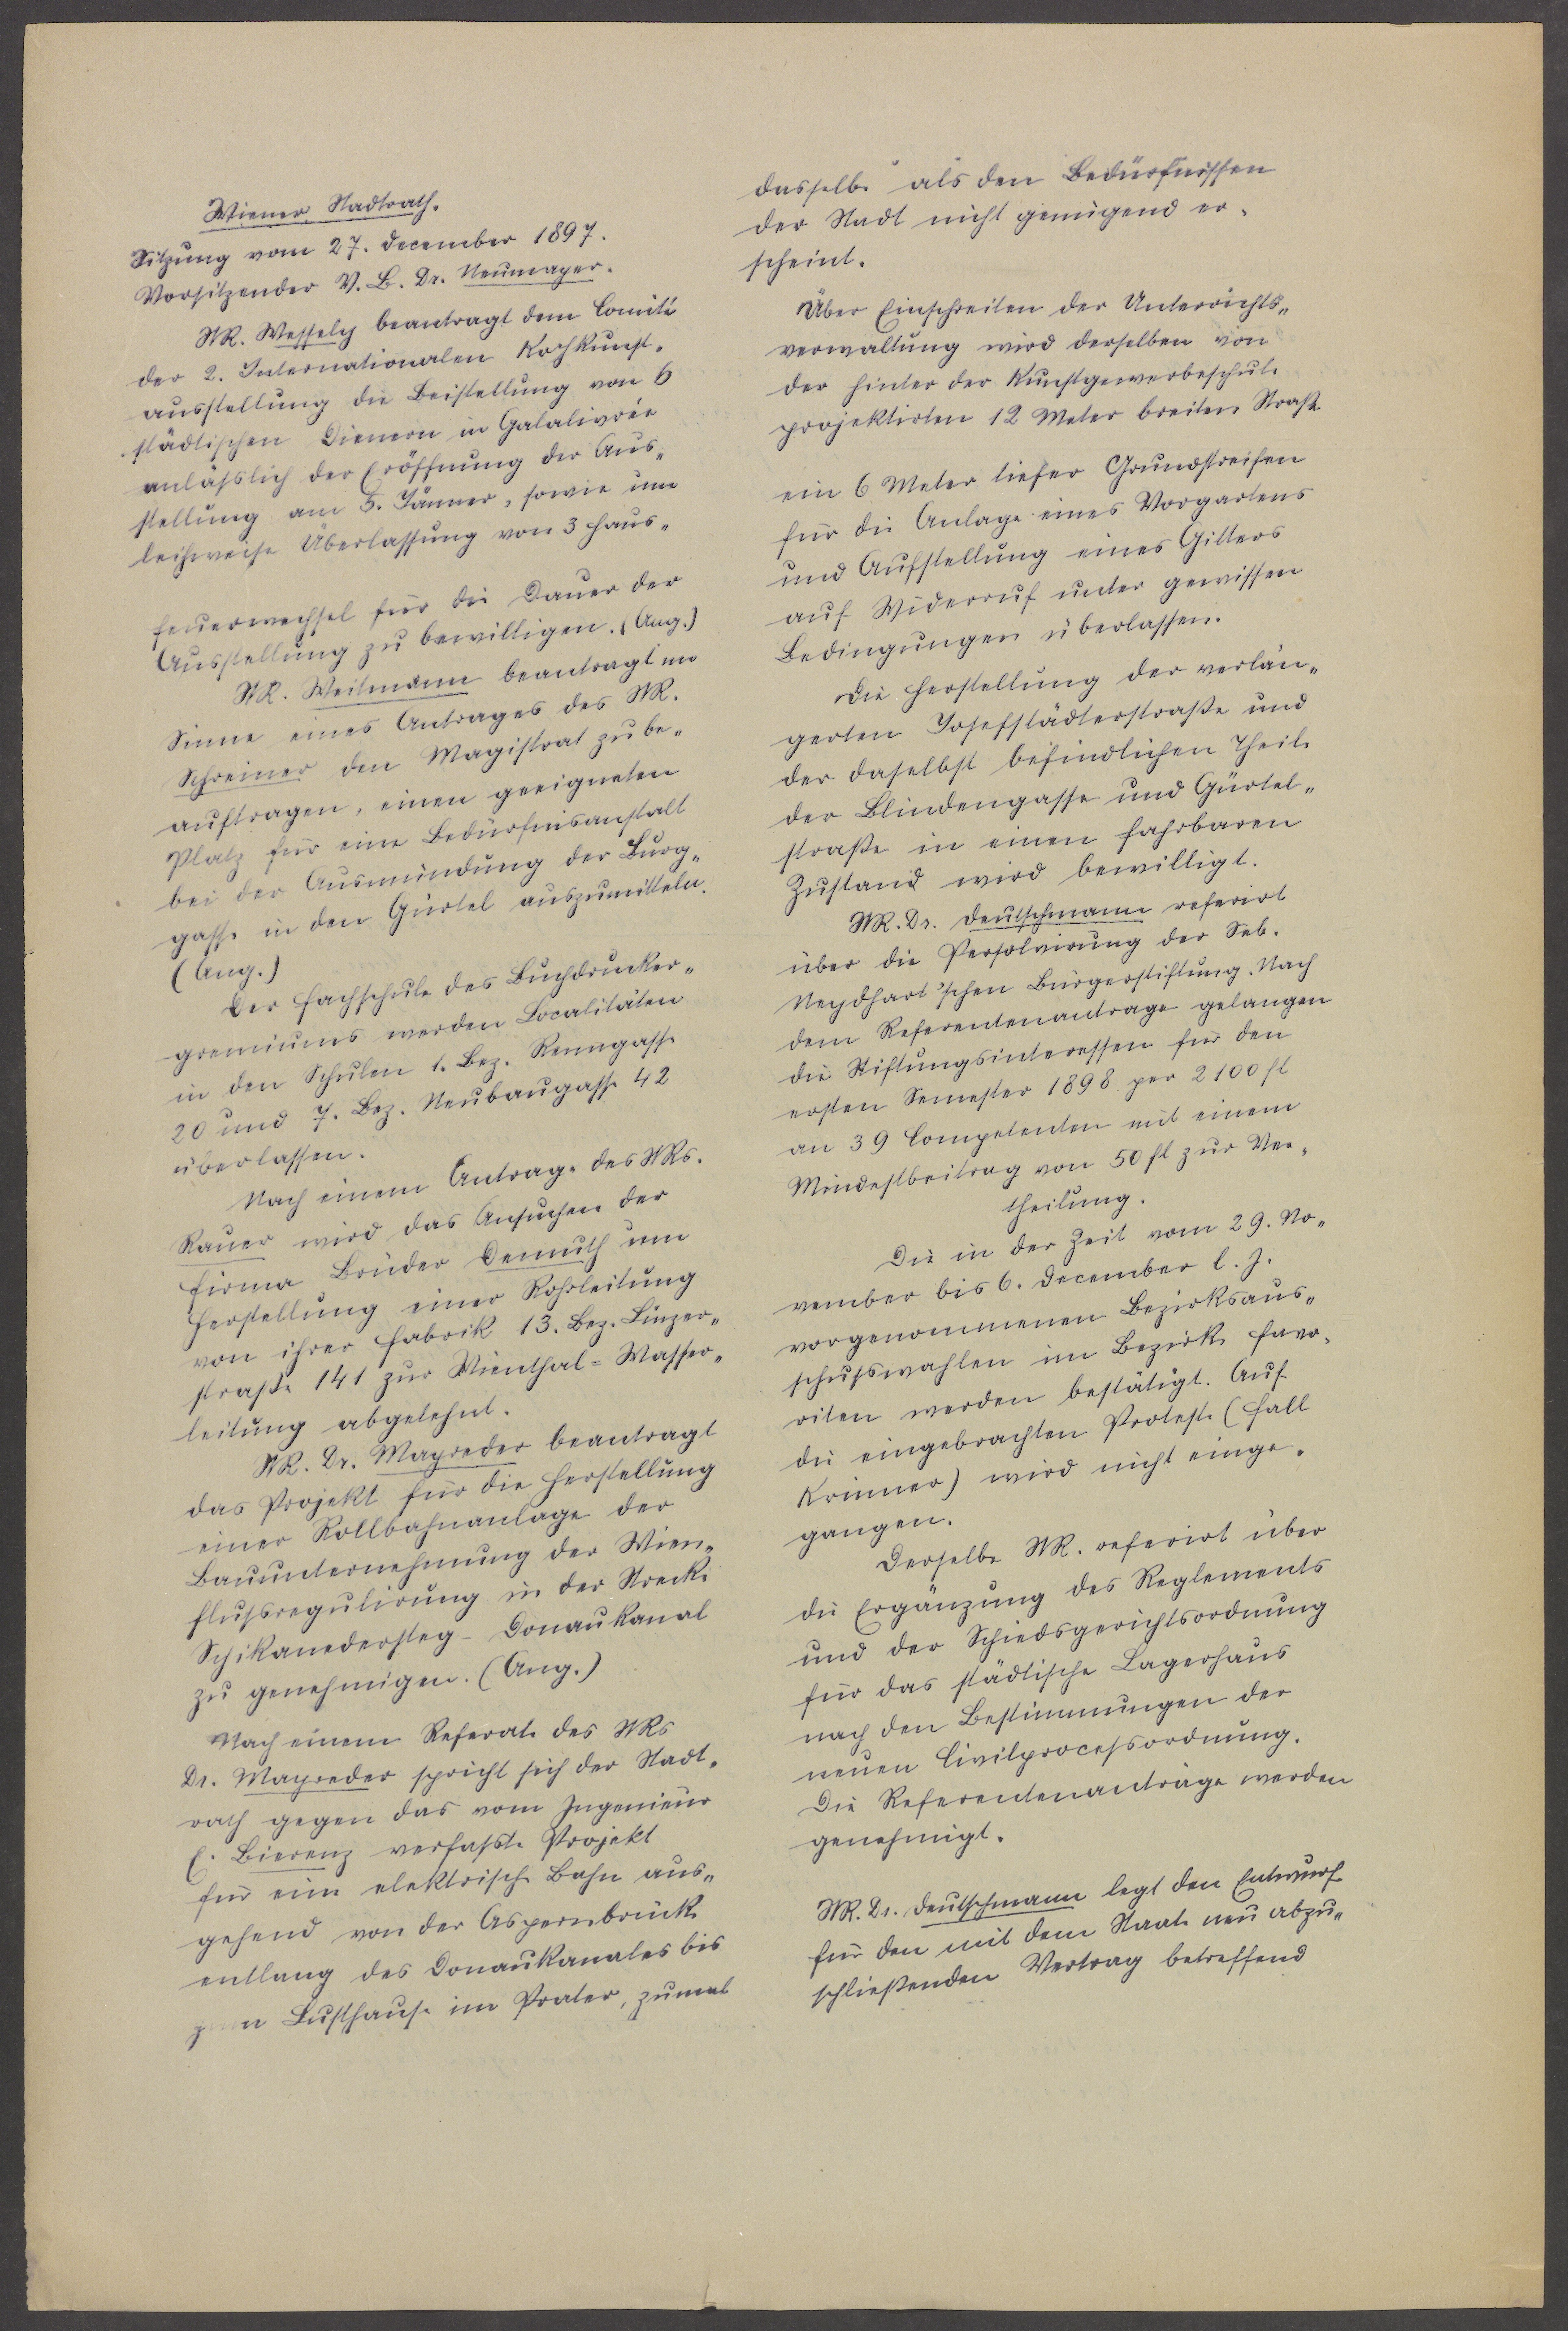 Wiener Stadtrath.
Sitzung vom 27. December 1897.
Vorsitzender V. B. Dr. Neumayer.
StR. Wessely beantragt dem Comité
der 2. Internationalen Kochkunst-
ausstellung die Beistellung von 6
städtischen Dienern in Galalivrée
anläßlich der Eröffnung der Aus-
stellung am 5. Jänner, sowie um
leihweise Überlassung von 3 Haus-
feuerwechsel für die Dauer der
Ausstellung zu bewilligen. (Ang.)
StR. Weitmann beantragt im
Sinne eines Antrages des StR.
Schreiner den Magistrat zu be-
auftragen, einen geeigneten
Platz für eine Bedürfnisanstalt
bei der Ausmündung der Burg-
gasse in den Gürtel auszumitteln.
(Ang.)
Der Fachschule des Buchdrucker-
gremiums werden Localitäten
in den Schulen 1. Bez. Renngasse
20 und 7. Bez. Neubaugasse 42
überlassen.
Nach einem Antrage des StRs.
Rauer wird das Ansuchen der
Firma Brüder Demuth um
Herstellung einer Rohrleitung
von ihrer Fabrik 13. Bez. Linzer-
straße 141 zur Wienthal-Wasser-
leitung abgelehnt.
StR. Dr. Mayreder beantragt
das Projekt für die Herstellung
einer Rollbahnanlage der
Bauunternehmung der Wien-
flußregulirung in der Strecke
Schikanedersteg - Donaukanal
zu genehmigen. (Ang.)
Nach einem Referate des StRs
Dr. Mayreder spricht sich der Stadt-
rath gegen das vom Ingenieur
E. Bierenz verfaßte Projekt
für eine elektrische Bahn aus-
gehend von der Aspernbrücke
entlang des Donaukanales bis
zum Lusthause im Prater, zumal
dasselbe als den Bedürfnissen
der Stadt nicht genügend er-
scheint.
Über Einschreiten der Unterrichts-
verwaltung wird derselben von
der hinter der Kunstgewerbeschule
projektirten 12 Meter breiten Straße
ein 6 Meter tiefer Grundstreifen
für die Anlage eines Vorgartens
und Aufstellung eines Gitters
auf Widerruf unter gewissen
Bedingungen überlassen.
Die Herstellung der verlän-
gerten Josefstädterstraße und
der daselbst befindlichen Theile
der Blindengasse und Gürtel-
straße in einen fahrbaren
Zustand wird bewilligt.
StR. Dr. Deutschmann referirt
über die Persolvirung der Seb.
Neydhart'schen Bürgerstiftung. Nach
dem Referentenantrage gelangen
die Stiftungsinteressen für den
ersten Semester 1898 per 2100 fl
an 39 Competenten mit einem
Mindestbeitrag von 50 fl zur Ver-
theilung.
Die in der Zeit vom 29. No-
vember bis 6. December l. J.
vorgenommenen Bezirksaus-
schußwahlen im Bezirke Favo-
riten werden bestätigt. Auf
die eingebrachten Proteste (Fall
Krinner) wird nicht einge-
gangen.
Derselbe StR. referirt über
die Ergänzung des Reglements
und der Schiedsgerichtsordnung
für das städtische Lagerhaus
nach den Bestimmungen der
neuen Civilproceßordnung.
Die Referentenanträge werden
genehmigt.
StR. Dr. Deutschmann legt den Entwurf
für den mit dem Staate neu abzu-
schließenden Vertrag betreffend